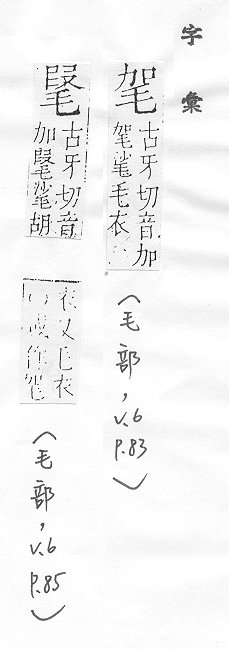 字彙
毠
古牙切音加
毠㲚毛衣
(毛部, v.6 P.83)
古牙切音
加㲚胡
衣又毛衣
作毠
(毛部, v.6 P.85)